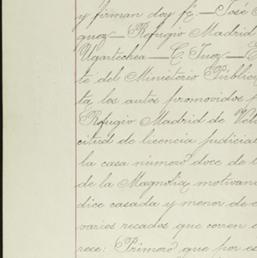 y firman doy fé. — José
quez — Refugio Madrid
Ugartechea — C. Juez —
te del Ministerio Public
ta, los autos promovidos
Refugio Madrid de Vel
citud de licencia judicia
la casa número doce de l
de la Magnolia, motivan
dice casada y menor de e
varios recados que corren
rece: Primero que por es